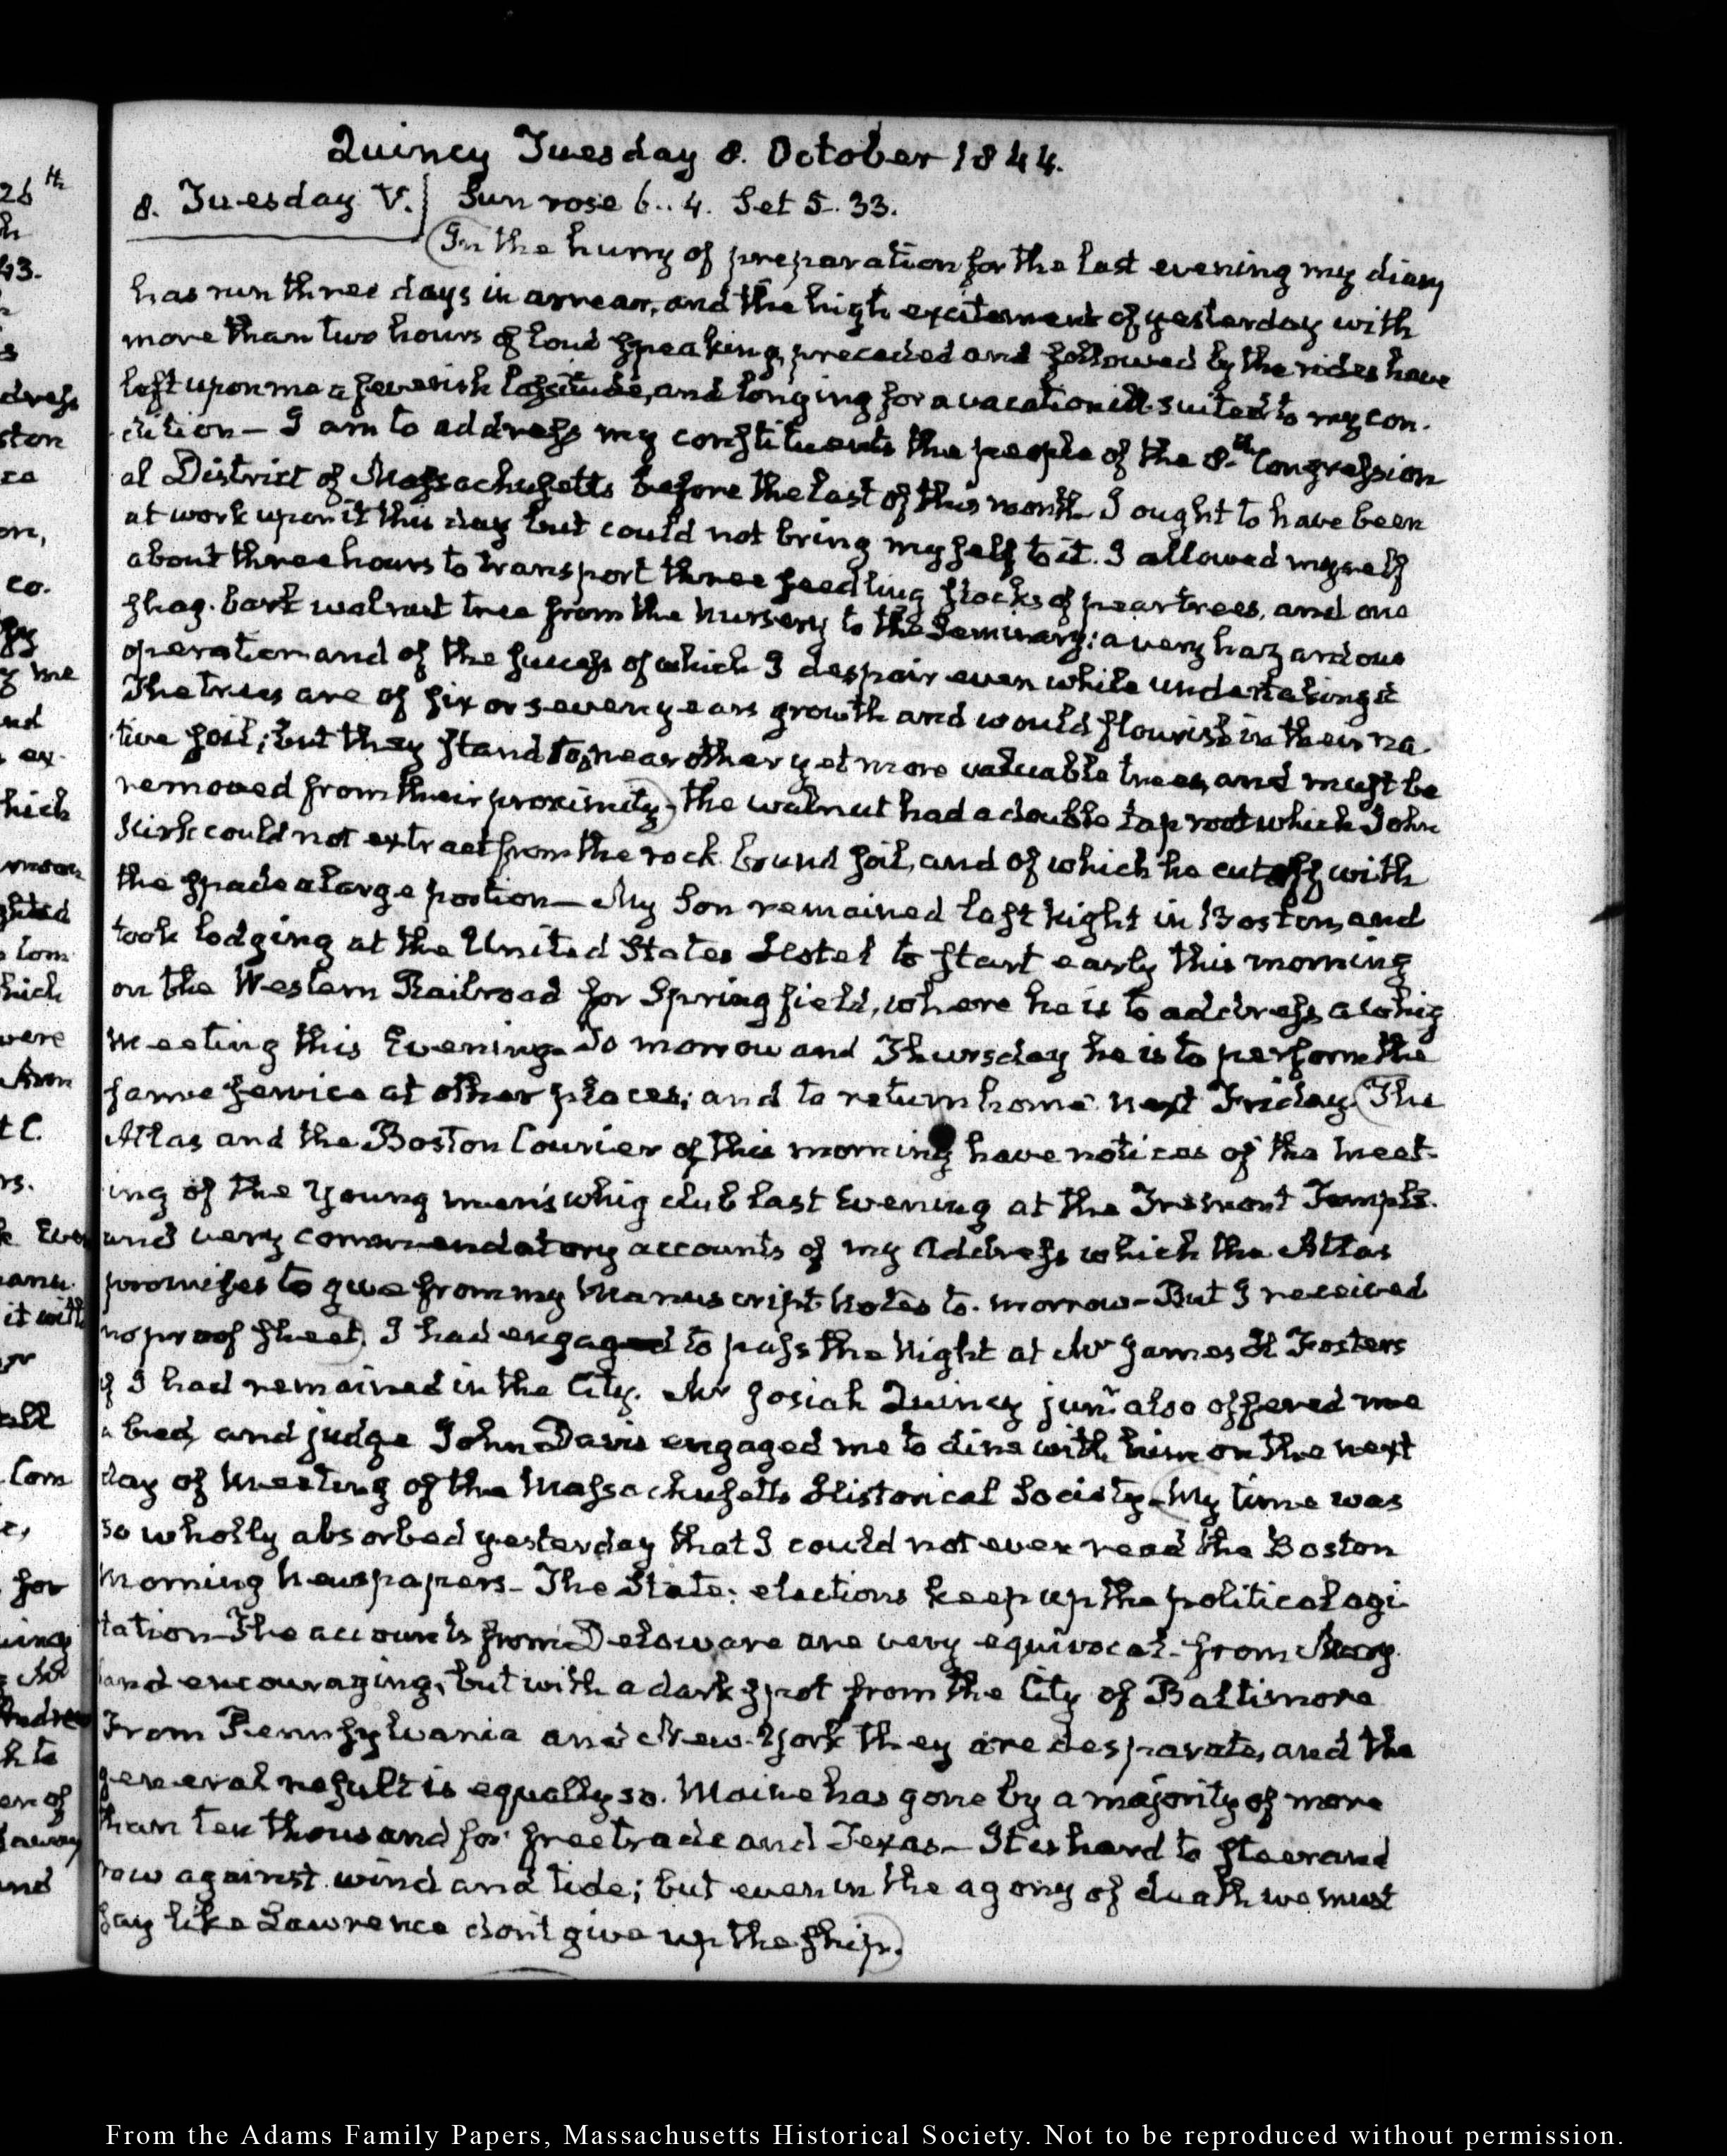 Quincy Tuesday 8. October 1844.
8. Tuesday V. } Sun rose 6..4. Set 5.33.
In the hurry of preparation for the last evening my diary
has run three days in arrear, and the high excitement of yesterday with
more than two hours of loud speaking, preceded and followed by the rides have
left upon me a feverish lassitude, and longing for a vacation ill suited to my con-
dition— I am to address my constituents the people of the 8.th Congression
al District of Massachusetts before the last of this month. I ought to have been
at work upon it this day but could not bring myself to it. I allowed myself
about three hours to transport three seedling stocks of pear trees, and one
shag-bark walnut tree from the nursery to the Seminary: a very hazardous
operation and of the success of which I despair even while undertaking it
The trees are of six or seven years growth and would flourish in their na-
tive soil; but they stand too near other yet more valuable trees, and must be
removed from their proximity, the walnut had a double tap root which John
Kirk could not extract from the rock bound soil, and of which he cut off with
the spade a large portion— My Son remained last Night in Boston, and
took lodging at the United States Hotel to start early this morning
on the Western Railroad for Springfield, where he is to address a whig
Meeting this Evening. To morrow and Thursday he is to perform the
same service at other places; and to return home next Friday. The
Atlas and the Boston Courier of this morning have notices of the meet-
ing of the Young men's whig club last Evening at the Tremont Temple.
and very commendatory accounts of my Address which the Atlas
promises to give from my Manuscript Notes to-morrow—But I received
no proof sheet. I had engaged to pass the Night at Mr James H Fosters
if I had remained in the City. Mr Josiah Quincy junr. also offered me
a bed, and judge John Davis engaged me to dine with him on the next
day of Meeting of the Massachusetts Historical Society—My time was
so wholly absorbed yesterday that I could not even read the Boston
Morning Newspapers— The State: elections keep up the political agi-
tation—The accounts from Delaware are very equivocal— from Mary-
land encouraging, but with a dark spot from the City of Baltimore
From Pennsylvania and New-York they are desparate, and the
general result is equally so. Maine has gone by a majority of more
than ten thousand for free trade and Texas— It is hard to steer and
row against wind and tide; but even in the agony of death we must
say like Lawrence don't give up the ship.
From the Adams Family Papers, Massachusetts Historical Society. Not to be reproduced without permission.